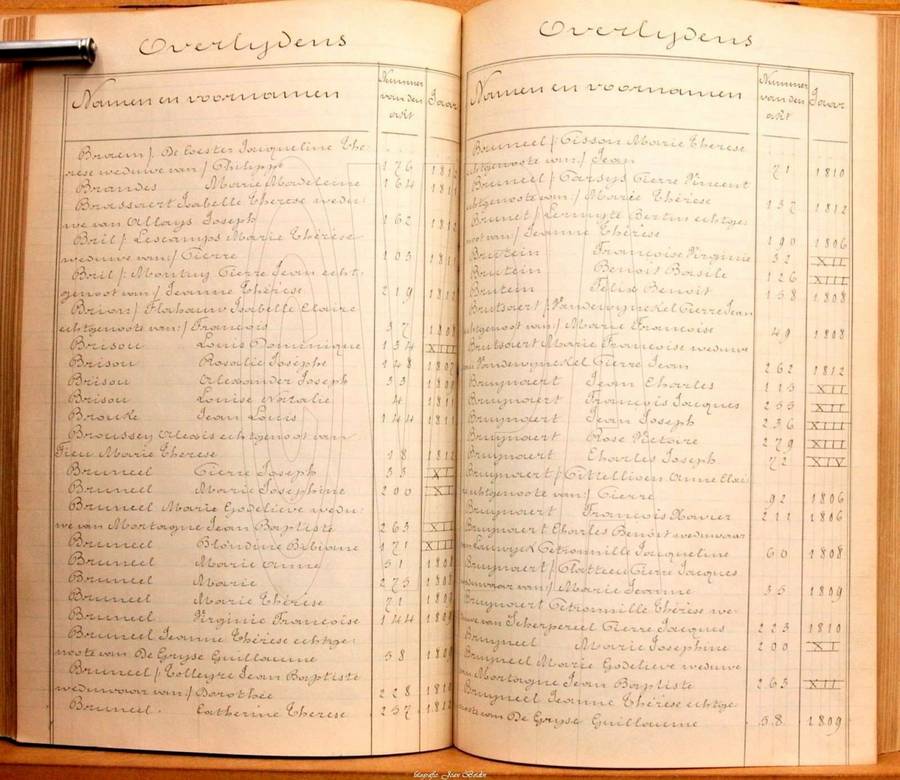 Overlydens
Namen en voornamen
Nummer van den akt
Jaar
Braem/ De Coester Jacqueline The-
rese weduwe van/ Philippe 176 181
Brandes Marie Madeleine 164 181
Brassart Isabelle Therese wedu-
we van Allays Joseph 162 1812
Bril/ Lescamps Marie Thérèse
weduwe van/ Pierre 103 181
Bril/ Pierre Jean echt-
genoot van/ Jeanne Thérèse 219 1812
Brion/ Flahaut Isabelle Claire
echtgenoote van/ François 37 1808
Brisou Louis Dominique 134 XIII
Brisou Rosalie Josèphe 148 180
Brisou Alexander Joseph 33 180
Brisou Louise Natalie 4 181
Broucke Jean Louis 144 181
Broussey Alexis echtgenoot van
Marie Therese 18 1812
Bruneel Pierre Joseph 33
Bruneel Marie Josephine 200 XI
Bruneel Marie Godelieve wedu-
we van Mortagne Jean Baptiste 263 XII
Bruneel Blondine Bibiane 171 XIII
Bruneel Marie Anne 51 180
Bruneel Marie 273 180
Bruneel Marie Thérèse 71 180
Bruneel Virginie Françoise 144 180
Bruneel Jeanne Thérèse echtge-
noote van De Gryse Guillaume 58 1809
Bruneel/ Jean Baptiste
weduwaar van/ Dorothee 228 181
Bruneel Catherine Therese 257 1812
Overlydens
Namen en voornamen
Nummer van den akt
Jaar
Bruneel/ Cisson Marie Therese
echtgenoote van/ Jean 71 1810
Bruneel/ Pierre Vincent
echtgenoote van/ Marie Thérèse 137 1812
Brunet/ Bertin echtge-
noot van/ Jeanne Thérèse 190 1806
Brutein Françoise Virginie 32 XII
Brutein Benoit Basile 126 XIII
Brutein Felix Benoit 158 1808
Brutsaert/ Vandewynckel Pierre Jean
echtgenoot van/ Marie Francoise 49 1808
Brutsaert Marie Francoise weduwe
van Vandewynckel Pierre Jean 262 1812
Bruynaert Jean Charles 113 XII
Bruynaert François Jacques 253 XII
Bruynaert Jean Joseph 236 XIII
Bruynaert Rose Victoire 279 XIII
Bruynaert Charles Joseph 72 XIV
Bruynaert/ Anne
echtgenoote van/ Pierre 92 1806
Bruynaert Francois Xavier 211 1806
Bruynaert Charles Benoit weduwaar
van Petronnille Jacqueline 60 1808
Bruynaert/ Pierre Jacques
weduwaar van/ Marie Jeanne 35 1809
Bruynaert Petronnille Thérèse we-
duwe van Scherpereel Pierre Jacques 223 1810
Bruyneel Marie Josephine 200 XI
Bruyneel Marie Godelieve weduwe
van Mortagne Jean Baptiste 263 XII
Bruyneel Jeanne Thérèse echtge-
noote van De Gryse Guillaume 58 1809
fotografie